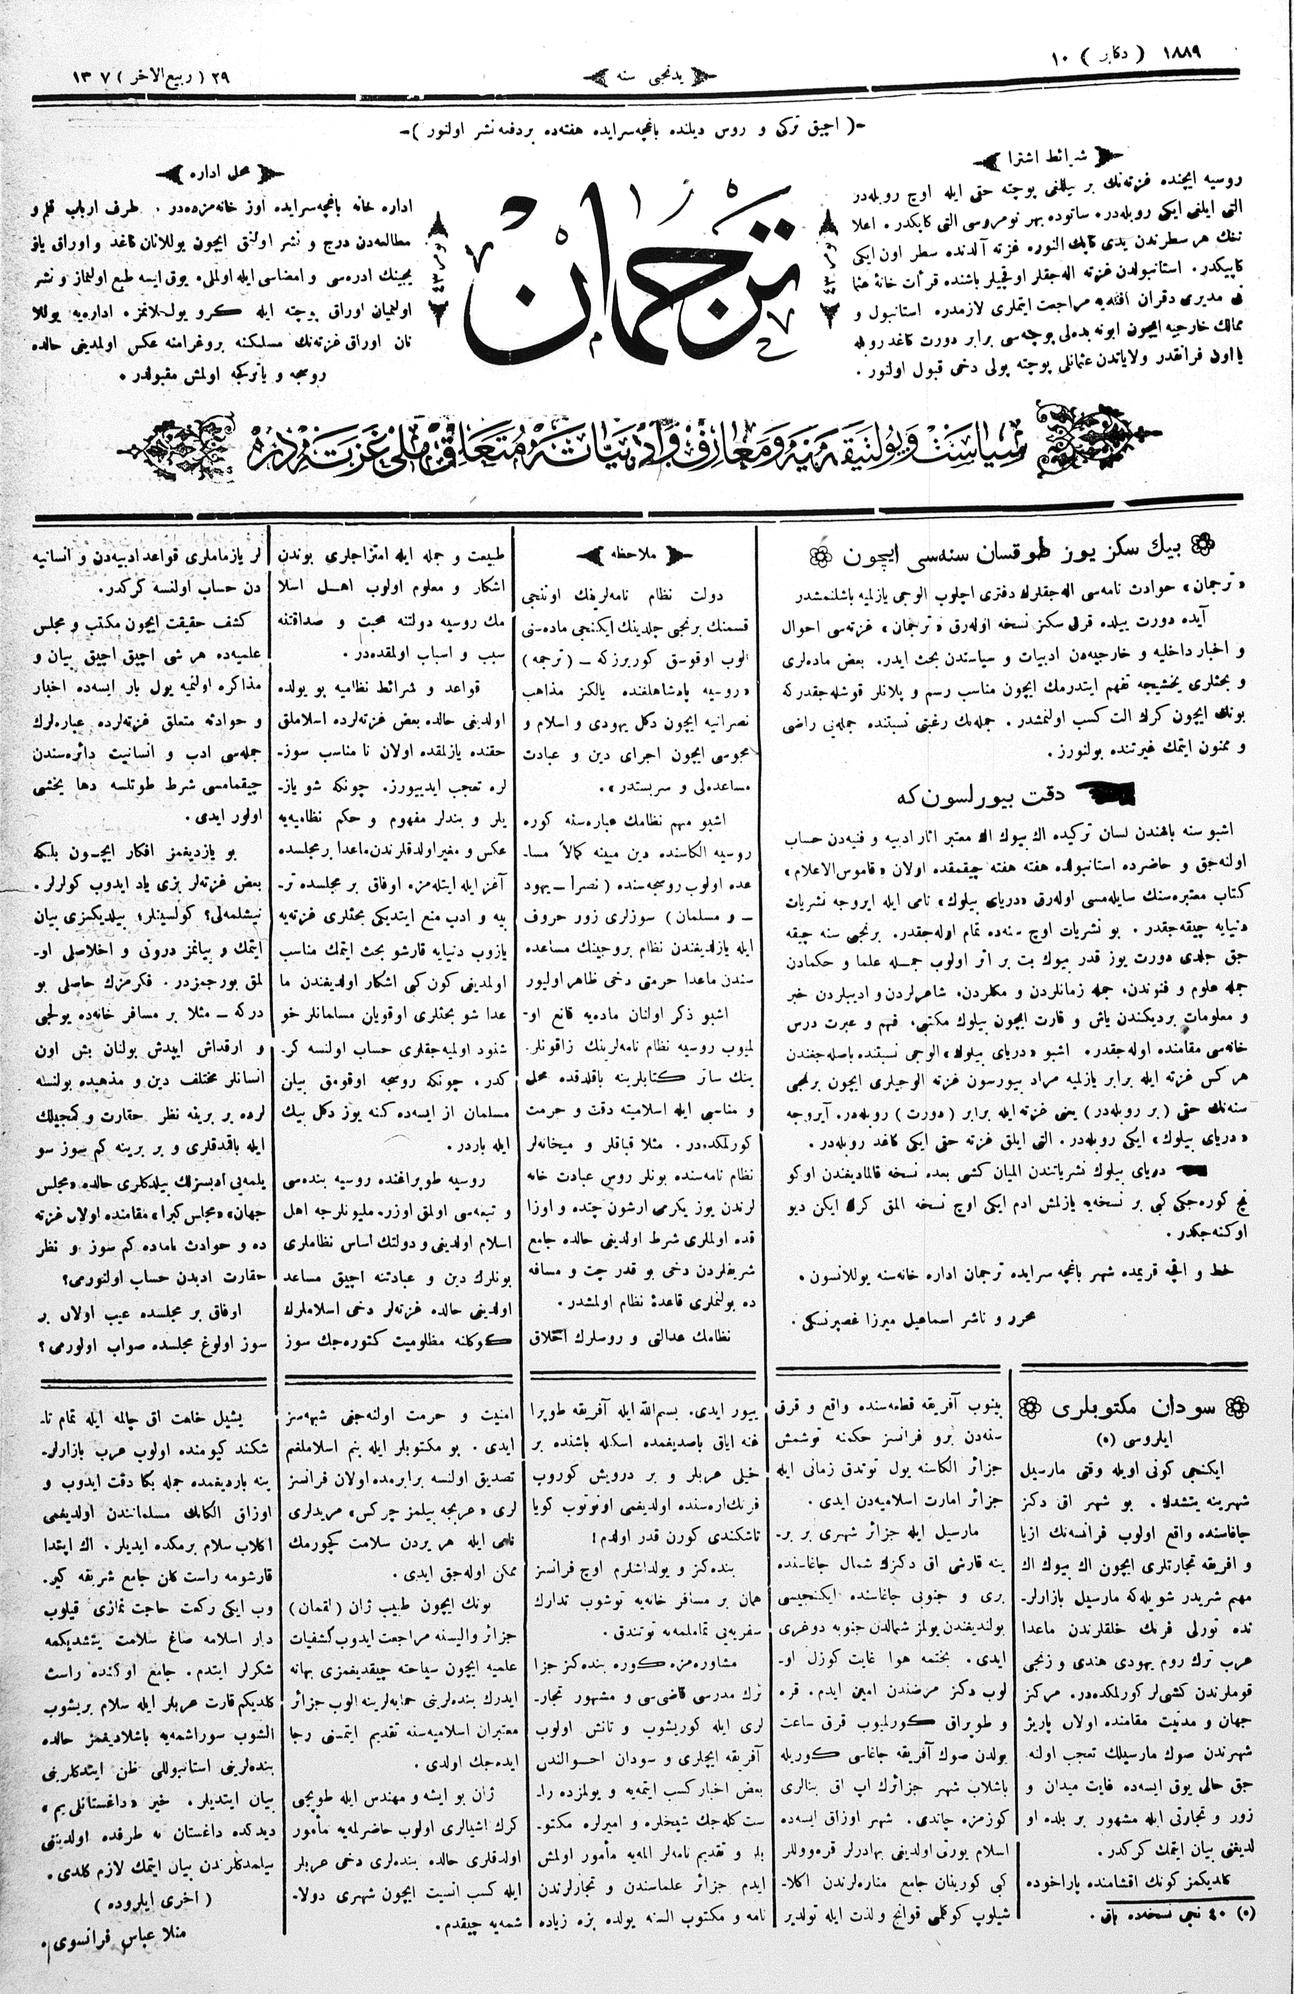 ١٨٨٩ ( دكابر ) ١٠
يدنجى سنه
٢٩ ( ربيع الاخر ) ١٣٠٧
-( اچيق تركى و روس ديلنده باغچه‌سرايده هفته‌ده بردفعه نشر اولنور )-
شرائط اشترا
روسيه ايچنده غزته‌نك بر ييللغى پوچته حقى ايله اوچ روبله‌در
التى ايلغى ايكى روبله‌در. ساتوده بهر نومروسى التى كاپكدر. اعلا
ممالك خارجيه ايچون ابونه بدلى پوچته‌سى برابر دورت كاغد روبله
يا اون فرانقدر ولاياتدن عثمانلى پوچته پولى دخى قبول اولنور.
ترجمان
محل اداره
اداره خانه باغچه‌سرايده اوز خانه‌مزده‌در. طرف ارباب قلم و
مطالعه‌دن درج و نشر اولنق ايچون يوللانان كاغد و اوراق يازو
يجينك ادره‌سى و امضاسى ايله اولملى. يوق ايسه طبع اولنماز و نشر
اولنميان اوراق پوچته ايله كرو يوللانمز. اداره‌يه يوللا
نان اوراق غزته‌نك مسلكنه پروغرامنه عكس اولمديغى حالده
روسجه و ياتركجه اولمش مقبولدر.
سياست و پولتيقه‌يه و معارف و ادبياته متعلق ملى غزته‌در
بيك سكز يوز طوقسان سنه‌سى ايچون
«ترجمان» حوادث نامه‌سى اله‌جقلرك دفترى اچلوب الوجى يازلمیه باشلنمشدر
آيده دورت ييلده قرق سكز نسخه اوله‌رق «ترجمان» غزته‌سى احوال
و اخبار داخليه و خارجيه‌دن ادبيات و سياستدن بحث ايدر. بعض ماده‌لرى
و بحثلرى يخشيجه تفهم ايتدرمك ايچون مناسب رسم و پلانلر قوشله‌جقدركه
بونك ايچون كرك الت كسب اولنمشدر. جمله‌نك رغبتى نسبتنده جمله‌يى راضى
و ممنون ايتمك غيرتنده بولنورز.
دقت بيورلسون كه
اشبو سنه باشندن لسان تركيده اك بيوك اك معتبر اثار ادبيه و فنيه‌دن حساب
اوله‌جق و حاضرده استانبولده هفته هفته چيقمقده اولان «قاموس الاعلام»
كتاب معتبره‌سنك سايله‌مسى اوله‌رق «درياى بيلوك» نامى ايله ايروجه نشريات
دنيايه چيقه‌جقدر. بو نشريات اوچ سنه‌ده تمام اوله‌جقدر. برنجى سنه چيقه
جق جلدى دورت يوز قدر بيوك بت بر اثر اولوب جمله علما و حكمادن
جمله علوم و فنوندن، جمله زمانلردن و ملكلردن، شاعرلردن و اديبلردن خبر
و معلومات برديكندن ياش و قارت ايچون بيلوك مكتبى، فهم و عبرت درس
خانه‌سى مقامنده اوله‌جقدر. اشبو «درياى بيلوك» الوجى نسبتنده باصله‌جغندن
هر كس غزته ايله برابر يازلمیه مراد بيورسون غزته الوجيلرى ايچون برنجى
سنه‌نك حقى (بر روبله‌در) يعنى غزته ايله برابر (دورت) روبله‌در. آيروجه
«درياى بيلوك» ايكى روبله‌در. التى ايلق غزته حقى ايكى كاغد روبله‌در.
درياى بيلوك نشرياتندن الميان كشى بعده نسخه قالماديغندن اوكو
نچ كوره‌جكى كبى بر نسخه‌يه يازلمش ادم ايكى اوچ نسخه المق كرك ايكن ديو
اوكنه‌جكدر.
خط و اقچه قريمده شهر باغچه سرايده ترجمان اداره خانه‌سنه يوللانسون.
محرر و ناشر اسماعيل ميرزا غصپرنسكى.
ملاحظه
دولت نظام نامه‌لرينك اوننجى
قسمنك برنجى جلدينك ايكنجى ماده‌سنى
الوب اوقوسق كوررزكه ــ (ترجمه)
«روسيه پادشاهلغنده يالكز مذاهب
نصرانيه ايچون دكل يهودى و اسلام و
مجوسى ايچون اجراى دين و عبادت
مساعده‌لى و سربستدر».
اشبو مهم نظامك عباره‌سنه كوره
روسيه الكاسنده دين مبينه كمالاً مسا-
عده اولوب روسجه‌سنده (نصرا ــ يهود
ــ و مسلمان) سوزلرى زور حروف
ايله يازلديغندن نظام بروجينك مساعده
سندن ماعدا حرمتى دخى ظاهر اوليور
اشبو ذكر اولنان ماده‌يه قانع او-
لميوب روسيه نظام نامه‌لرينك زاقونلر-
ينك سائر كتابلرينه باقلدقده محل
و مناسبى ايله اسلاميته دقت و حرمت
كورلمكده‌در. مثلا قباقلر و ميخانه‌لر
نظام نامه‌سنده بونلر روس عبادت خانه
لرندن يوز يكرمى ارشون چتده و اوزا
قده اولملرى شرط اولديغى حالده جامع
شريفلردن دخى بو قدر چت و مسافه
ده بولنملرى قاعدهٔ نظام اولمشدر.
نظامك عدالتى و روسلرك اخلاق
طبيعت و جمله ايله امتزاجلرى بوندن
اشكار و معلوم اولوب اهل اسلا
مك روسيه دولتنه محبت و صداقتنه
سبب و اسباب اولمقده‌در.
قواعد و شرائط نظاميه بو يولده
اولديغى حالده بعض غزته‌لرده اسلاملق
حقنده يازلمقده اولان نا مناسب سوز-
لره تعجب ايديورز. چونكه شو ياز-
يلر و بندلر مفهوم و حكم نظاميه‌يه
عكس و مغير اولدقلرندن ماعدا برمجلسده
آغز ايله ايتله‌مزه. اوفاق بر مجلسده تر-
بيه و ادب منع ايتديكى بحثلرى غزته‌يه
يازوب دنيايه قارشو بحث ايتمك مناسب
اولمديغى كون كبى اشكار اولديغندن ما
عدا شو بحثلرى اوقويان مسلمانلر خو
شنود اولميه‌جقلرى حساب اولنسه كر-
كدر. چونكه روسجه اوقومق بيلن
مسلمان از ايسه‌ده كنه يوز دكل بيك
ايله باردر.
روسيه طوپراغنده روسيه بنده‌سى
و تبعه‌سى اولمق اوزره مليونلرجه اهل
اسلام اولديغى و دولتك اساس نظاملرى
بونلرك دين و عبادتنه اچيق مساعد
اولديغى حالده غزته‌لر دخى اسلاملرك
كوكلنه مظلوميت كتوره‌جك سوز
لر يازماملرى قواعد ادبيه‌دن و انسانيه
دن حساب اولنسه كركدر.
كشف حقيقت ايچون مكتب و مجلس
علميه‌ده هر شى اچيق اچيق بيان و
مذاكره اولنميه يول بار ايسه‌ده اخبار
و حوادثه متعلق غزته‌لرده عباره‌لرك
جمله‌سى ادب و انسانيت دائره‌سندن
چيقمامسى شرط طوتلسه دها يخشى
اولور ايدى.
بو يازديغمز افكار ايچون بلكه
بعض غزته‌لر بزى ياد ايدوب كولرلر.
نيشلمه‌لى؟ كولسينلر؛ بيلديكمزى بيان
ايتمك و بيانمز درونى و اخلاصلى او-
لمق بورجمزدر. فكرمزك حاصلى بو
دركه ــ مثلا بر مسافر خانه‌ده يولجى
و ارقداش ايپدش بولنان بش اون
انسانلر مختلف دين و مذهبده بولنسه
لرده بر برينه نظر حقارت و كمجيلك
ايله باقدقلرى و بر برينه كم سوز سو
يلمه‌يى ادبسزلك بيلدكلرى حالده «مجلس
جهان» «مجلس كبرا» مقامنده اولان غزته
ده و حوادث نامه‌ده كم سوز و نظر
حقارت ادبدن حساب اولنورمى؟
اوفاق بر مجلسده عيب اولان بر
سوز اولوغ مجلسده صواب اولورمى؟
سودان مكتوبلرى
ايلروسى (٥)
ايكنجى كونى اويله وقتى مارسيل
شهرينه يتشدك. بو شهر اق دكز
جاغاسنده واقع اولوب فرانسه‌نك ازيا
و افريقه تجارتلرى ايچون اك بيوك اك
مهم شهريدر شويله‌كه مارسيل بازارلر-
نده تورلى فرنك خلقلرندن ماعدا
عرب ترك روم يهودى هندى و زنجى
قوملرندن كشى‌لر كورلمكده‌در. مركز
جهان و مدنيت مقامنده اولان پاريژ
شهرندن صوك مارسيلك تعجب اولنه
جق حالى يوق ايسه‌ده غايت ميدان و
زور و تجارتى ايله مشهور بر بلده او
لديغنى بيان ايتمك كركدر.
كلديكمز كونك اقشامنده پاراخوده
(٥) ٤٠ نجى نسخه‌لاده باق.
بينوب آفريقه قطعه‌سنده واقع و قرق
سنه‌دن برو فرانسز حكمنه توشمش
جزائر الكاسنه يول توتدق زمانى ايله
جزائر امارت اسلاميه‌دن ايدى.
مارسيل ايله جزائر شهرى بر بر-
ينه قارشى اق دكزك شمال جاغاسنده
برى و جنوبى جاغاسنده ايكنجيسى
بولنديغندن يولمز شمالدن جنوبه دوغرى
ايدى. بختمه هوا غايت كوزل او-
لوب دكز مرضندن امين ايدم. قره
و طوپراق كورلميوب قرق ساعت
بولدن صوك آفريقه جاغاسى كوريله
باشلاب شهر جزائرك اپ اق بنالرى
كوزمزه چاندى. شهر اوزاق ايسه‌ده
كبى كورينان جامع مناره‌لرندن اكلا-
شيلوب كوكلى قوانچ ولذت ايله تولدير
ييور ايدى. بسم‌الله ايله آفريقه طوپرا
غنه اياق باصديغمده اسكله باشنده بر
خيلى عربلر و بر درويش كوروب
فرنك اره‌سنده اولديغمى اونوتوب كويا
تاشكندى كورن قدر اولدم!
بنده‌كز و يولداشلرم اوچ فرانسز
همان بر مسافر خانه‌يه توشوب تدارك
سفريه‌يى تماملمغه توتندق.
مشاوره‌مزه كوره بنده‌كز جزا
ئرك مدرسى قاضى‌سى و مشهور تجار-
لرى ايله كوريشوب و تانش اولوب
آفريقه ايچلرى و سودان احوالندن
بعض اخبار كسب ايتمه‌يه و يولمزده را-
ست كله‌جك شيخلره و اميرلره مكتو-
بلر و تقديم نامه‌لر المه‌يه مأمور اولمش
ايدم جزائر علماسندن و تجارلرندن
نامه و مكتوب السنه يولده بزه زياده
امنيت و حرمت اولنه‌جغى شبهه‌سز
ايدى. بو مكتوبلر ايله بنم اسلاملغم
تصديق اولنسه برابرمده اولان فرانسز
لرى «عربجه بيلمز چركس» مريدلرى
نامى ايله هر يردن سلامت كچورمك
ممكن اوله‌جق ايدى.
بونك ايچون طبيب ژان (لقمان)
جزائر واليسنه مراجعت ايدوب كشفيات
علميه ايچون سياحته چيقديغمزى بهانه
ايدرك بنده‌لرينى حمايه‌لرينه الوب جزائر
معتبران اسلاميه‌سنه تقديم ايتمسنى رجا
ايده‌جك اولدى.
ژان بو ايشه و مهندس ايله طوبجى
كرك اشيالرى اولوب حاضرلمه‌يه مأمور
اولدقلرى حالده بنده‌لرى دخى عربلر
ايله كسب انسيت ايچون شهرى دولا-
شمه‌يه چيقدم.
يشيل خلعت اق چالمه ايله تمام تا-
شكند كيومنده اولوب عرب بازارلر-
ينه بارديغمده جمله بكا دقت ايدوب و
اوزاق الكانك مسلمانندن اولديغمى
اكلاب سلام برمكده ايديلر. اك ابتدا
قارشومه راست كلان جامع شريفه كير-
وب ايكى ركعت حاجت نمازى قيلوب
دار اسلامه صاغ سلامت يتشديكمه
شكرلر ايتدم. جامع اوكنده راست
كلديكم قارت عربلر ايله سلام بريشوب
الشوب سوراشمه‌يه باشلاديغمز حالده
بنده‌لرينى استانبوللى ظن ايتدكلرينى
بيان ايتديلر. خير «داغستانلى‌يم»
ديدكده داغستان نه طرفده اولديغنى
بيلمدكلرندن بيان ايتمك لازم كلدى.
(اخرى ايلروده)
منلا عباس فرانسوى.